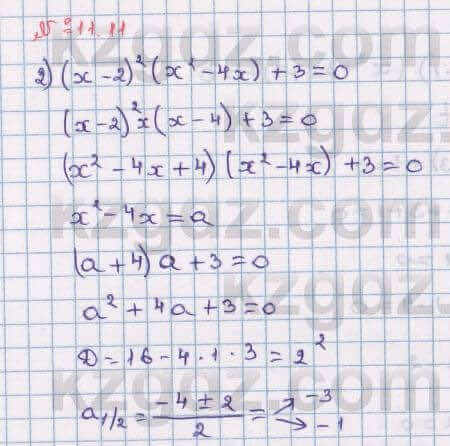 № 11.11
2) (x-2)²(x²-4x)+3=0
(x-2)²x(x-4)+3=0
(x²-4x+4)(x²-4x)+3=0
x²-4x=a
(a+4)a+3=0
a²+4a+3=0
D=16-4·1·3=2²
a₁/₂=(-4±2)/2= ↗-3 ↘-1
kzgaz.com